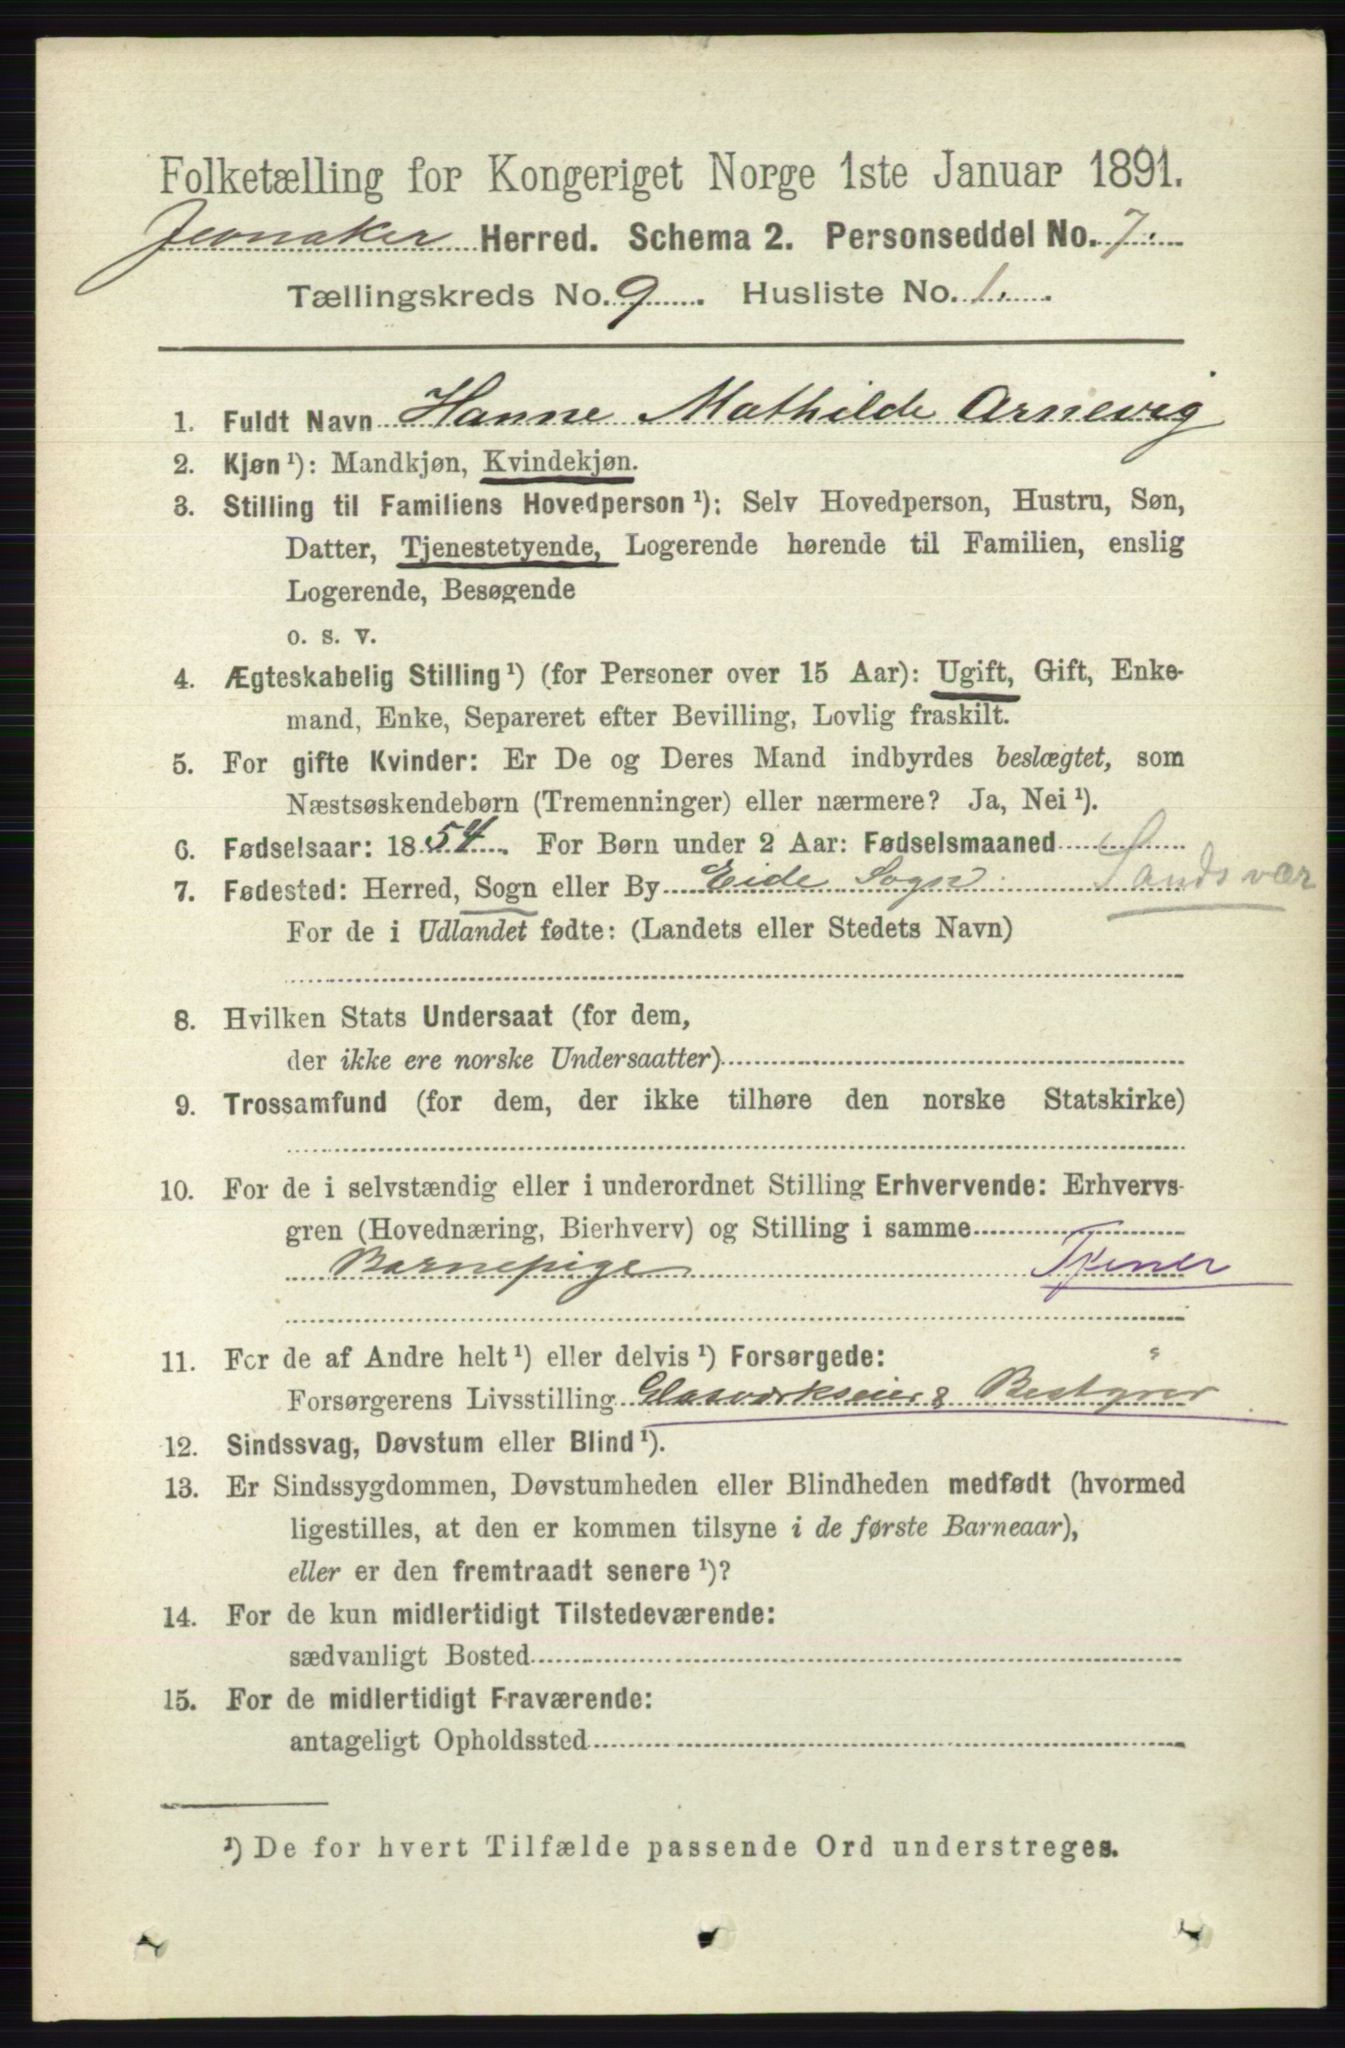 Folketælling for Kongeriget Norge 1ste Januar 1891.
Jevnaker Herred. Schema 2. Personseddel No. 7.
Tællingskreds No. 9 . Husliste No. 1.
1. Fuldt Navn Hanne Mathilde Arnevig
2. Kjøn¹): Mandkjøn, Kvindekjøn.
3. Stilling til Familiens Hovedperson¹): Selv Hovedperson, Hustru, Søn,
Datter, Tjenestetyende, Logerende hørende til Familien, enslig
Logerende, Besøgende
o. s. v.
4. Ægteskabelig Stilling¹) (for Personer over 15 Aar): Ugift, Gift, Enke-
mand, Enke, Separeret efter Bevilling, Lovlig fraskilt.
5. For gifte Kvinder: Er De og Deres Mand indbyrdes beslægtet, som
Næstsøskendebørn (Tremenninger) eller nærmere? Ja, Nei¹).
6. Fødselsaar: 1854. For Børn under 2 Aar: Fødselsmaaned
7. Fødested: Herred, Sogn eller By Eide Sogn Sandsvær
For de i Udlandet fødte: (Landets eller Stedets Navn)
8. Hvilken Stats Undersaat (for dem,
der ikke ere norske Undersaatter)
9. Trossamfund (for dem, der ikke tilhøre den norske Statskirke)
10. For de i selvstændig eller i underordnet Stilling Erhvervende: Erhvervs-
gren (Hovednæring, Bierhverv) og Stilling i samme
Barnepige Tjener
11. For de af Andre helt¹) eller delvis¹) Forsørgede:
Forsørgerens Livsstilling Glasværkseier & Bestyrer
12. Sindssvag, Døvstum eller Blind¹).
13. Er Sindssygdommen, Døvstumheden eller Blindheden medfødt (hvormed
ligestilles, at den er kommen tilsyne i de første Barneaar),
eller er den fremtraadt senere¹)?
14. For de kun midlertidigt Tilstedeværende:
sædvanligt Bosted
15. For de midlertidigt Fraværende:
antageligt Opholdssted
¹) De for hvert Tilfælde passende Ord understreges.